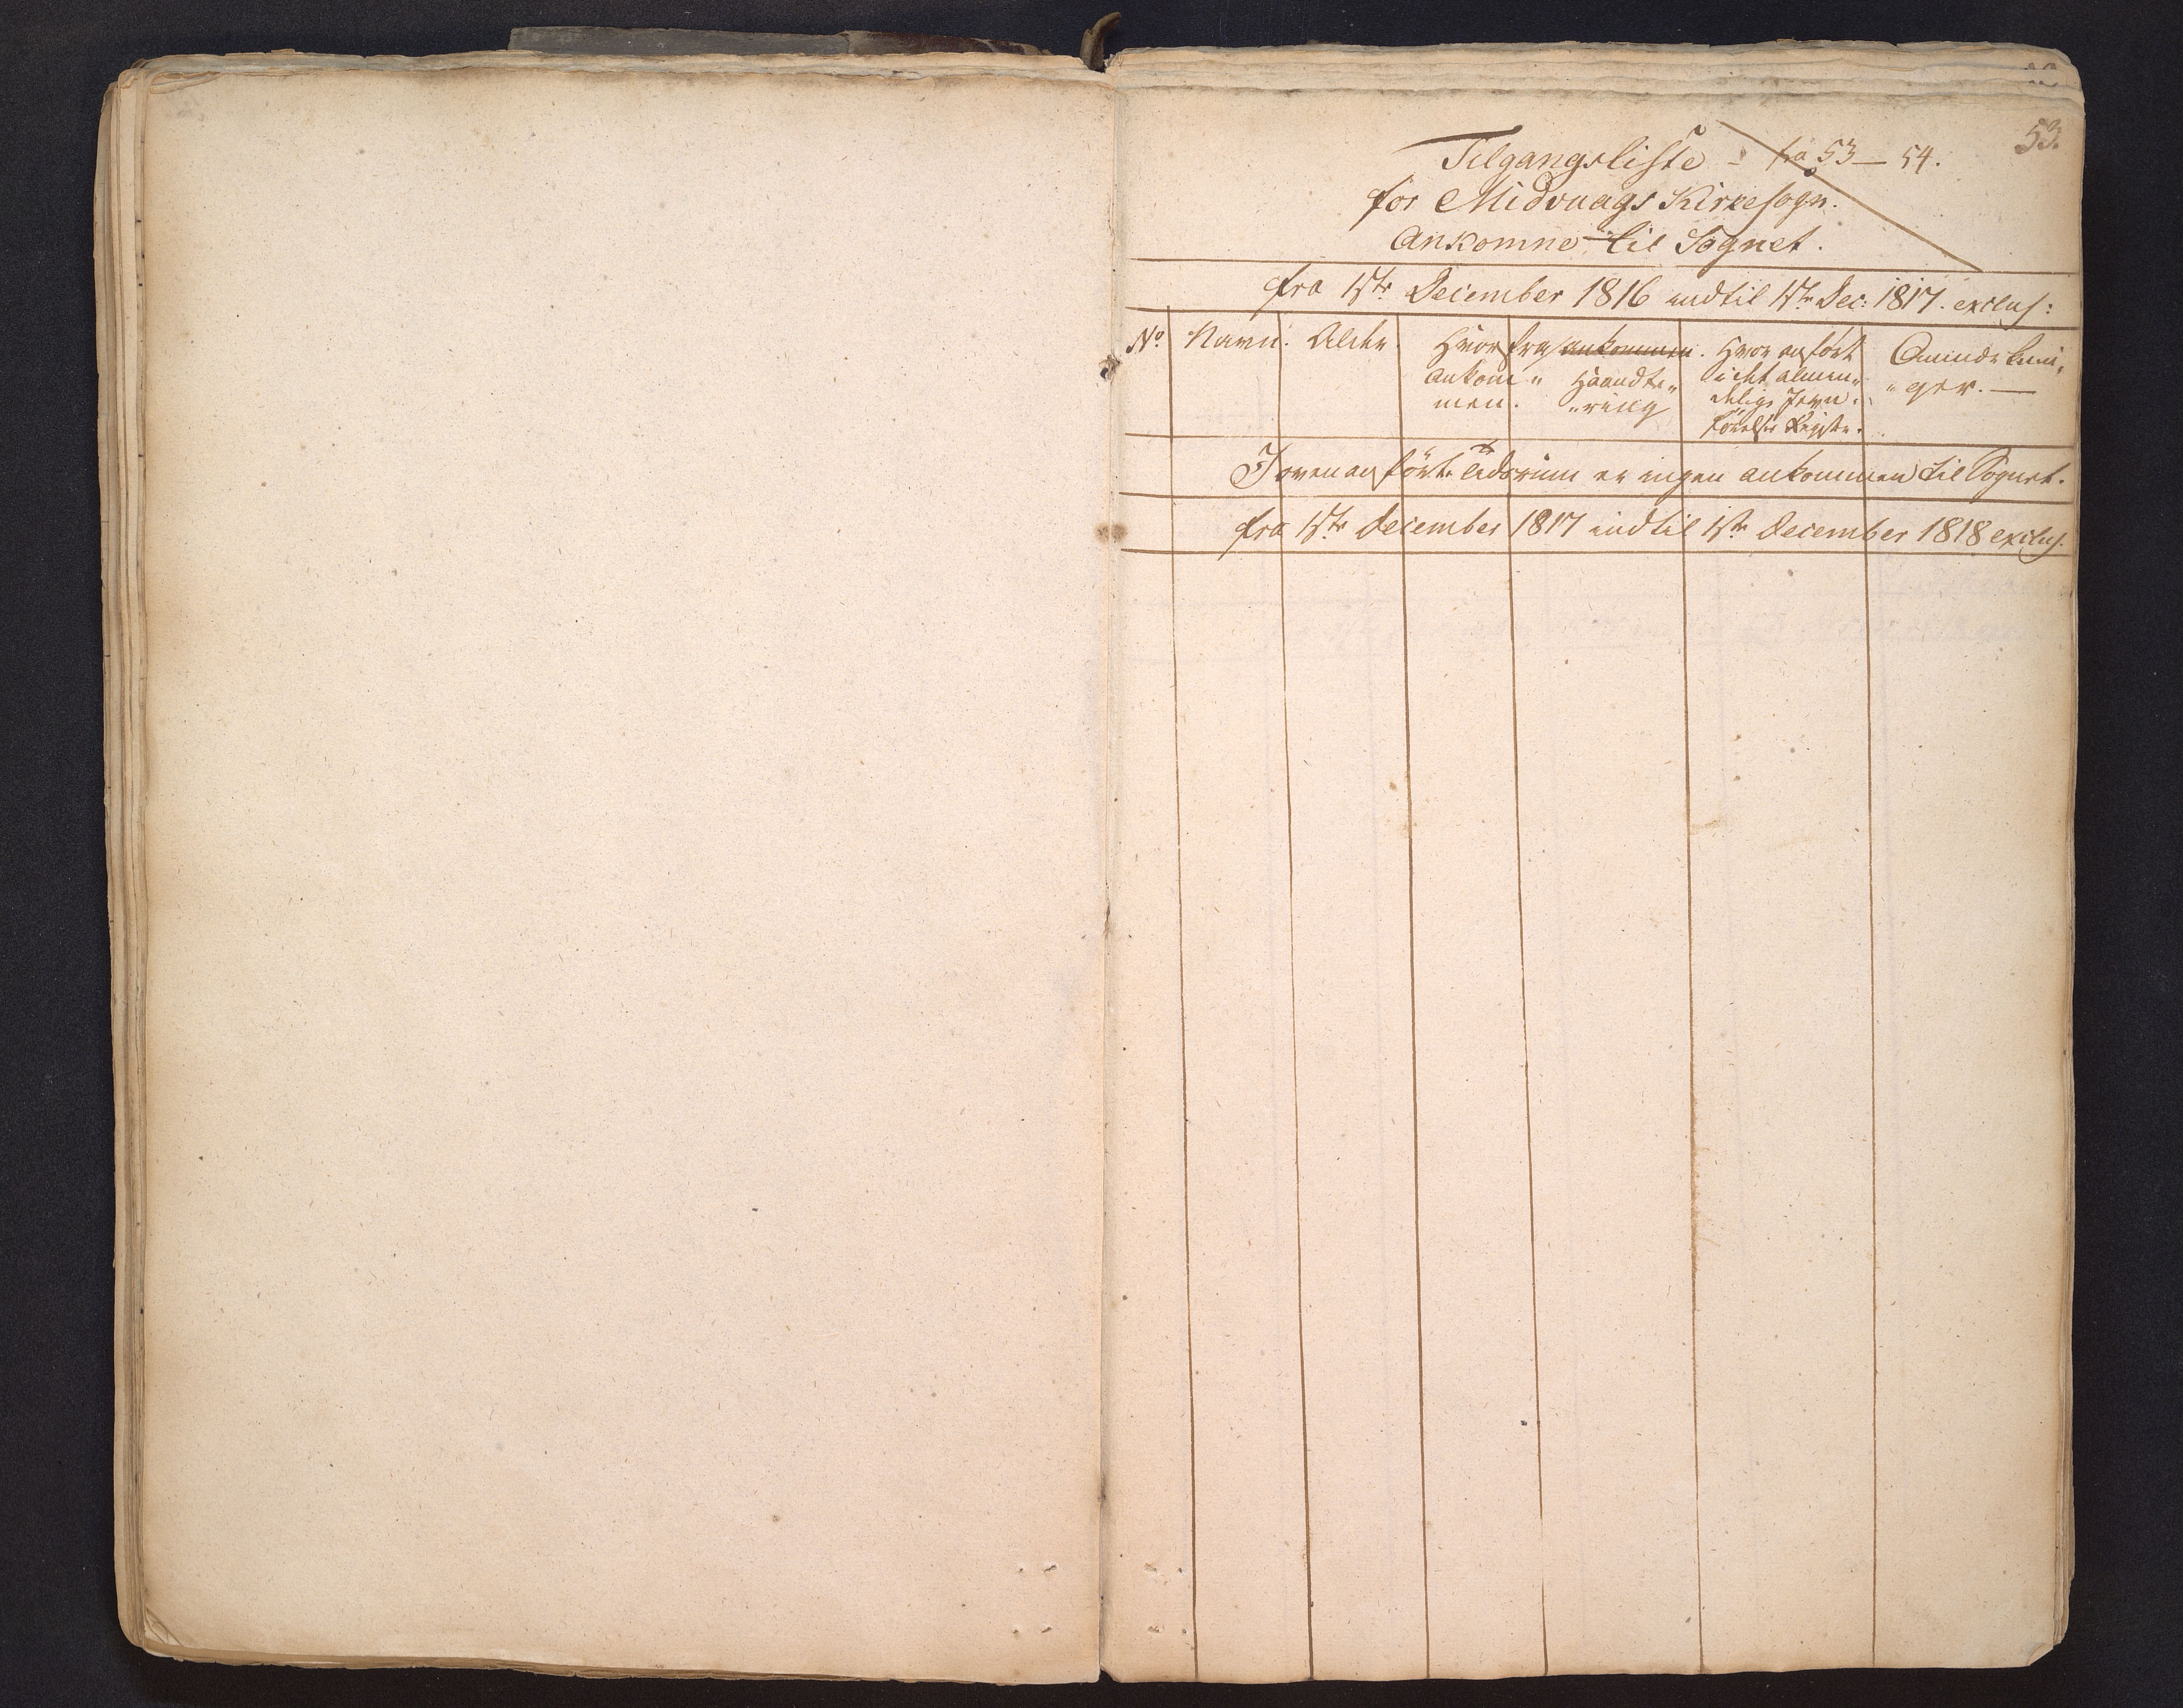 53.
Tilgangsliste - fra 53 — 54.
for Midvaags Kirkesogn.
Ankomne til Sognet.
fra 1ste December 1816 indtil 1ste Dec: 1817. exclus:
No. Navn. Alder. Hvorfra ankommen. Haandte„ „ring Hvor anført i det almin„ delige Jevn„ førelses Register. Anmærknin„ „ger. —
I ovenanførte Tidsrum er ingen ankommen til Sognet.
fra 1ste December 1817 indtil 1ste December 1818 exclus.